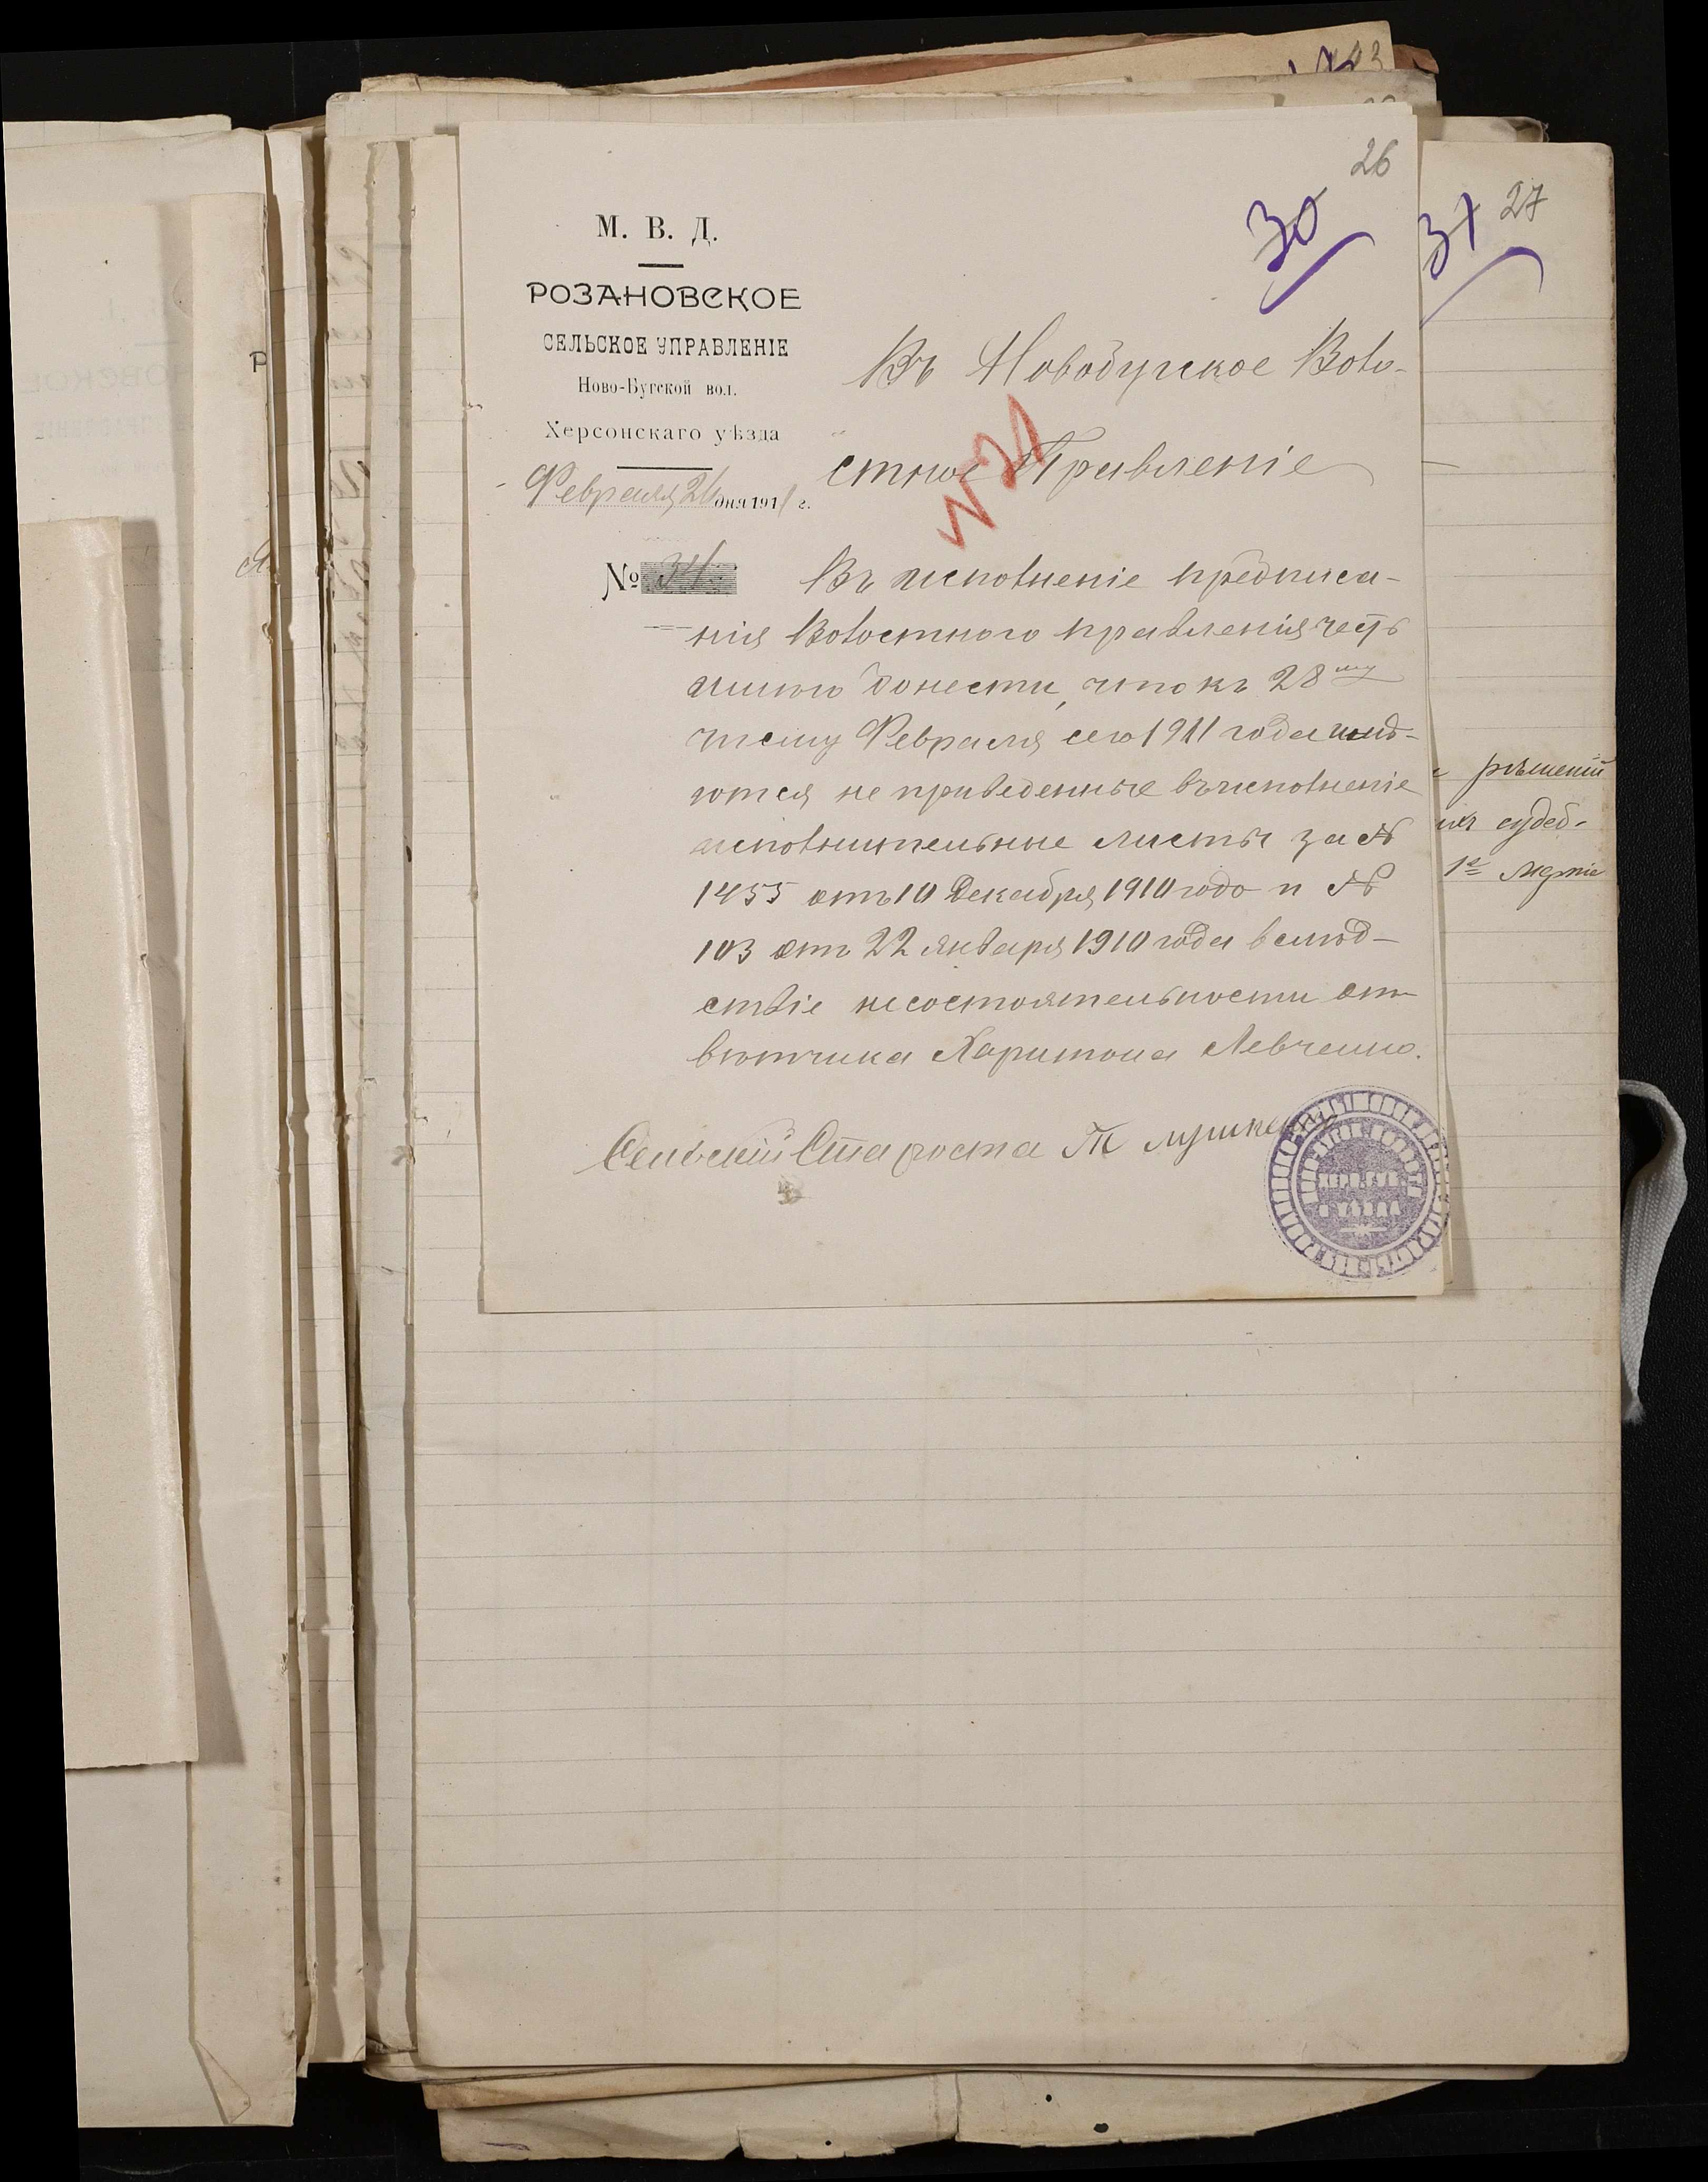 26
30
27
31
М. В. Д.
РОЗАНОВСКОЕ
СЕЛЬСКОЕ УПРАВЛЕНІЕ
Ново-Бугской вол.
Херсонскаго уѣзда
Февраля 26 дня 1911 г.
№ 34
Въ Новобугское Воло-
стное Правленіе
№ 21
Въ исполненіе предписа-
нія Волостного правленія честь
имѣю донести, что къ 28му
числу Февраля сего 1911 года имѣ-
ются не приведенные въ исполненіе
исполнительные листы за №
1455 отъ 10 Декабря 1910 годо и №
103 отъ 22 января 1910 года вслѣд-
ствіе несостоятельности от-
вѣтчика Харитона Левченко.
Сельскій Староста
ХЕРС. ГУБ.
И УѢЗДА
рѣшеній
судеб-
1е марта